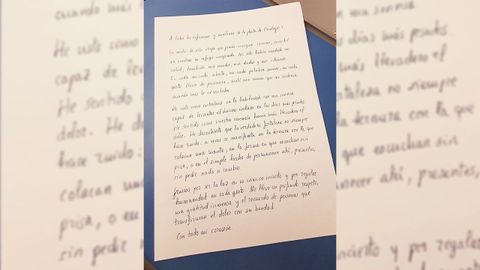 A todos los enfermeros y auxiliares de la planta de Oncología:
En medio de esta etapa que jamás imaginé
en vosotros un refugio inesperado. No solo habéis cuidado mi
salud, también mis miedos, mis dudas y mis silencios
En cada mirada atenta, en cada palabra suave, en cada
gesto lleno de paciencia, sentí una mano que me sostenía
cuando más lo necesitaba.
He visto como entrabais en la habitación con una sonrisa
capaz de levantar el ánimo incluso en los días más
He sentido como vuestra cercanía hacía más llevadero el
dolor. He descubierto que la verdadera fortaleza no siempre
hace ruido: a veces se manifiesta en la ternura con la que
colocan una manta, en la forma en que escuchan sin
prisa, o en el simple hecho de permanecer ahí, presentes,
sin pedir nada a cambio.
Gracias por ser la luz en un camino incierto y por regalar
humanidad en cada gesto. Me llevo un profundo respeto,
una gratitud inmensa y el recuerdo de personas que
transforman el dolor con su bondad.
Con todo mi corazón.